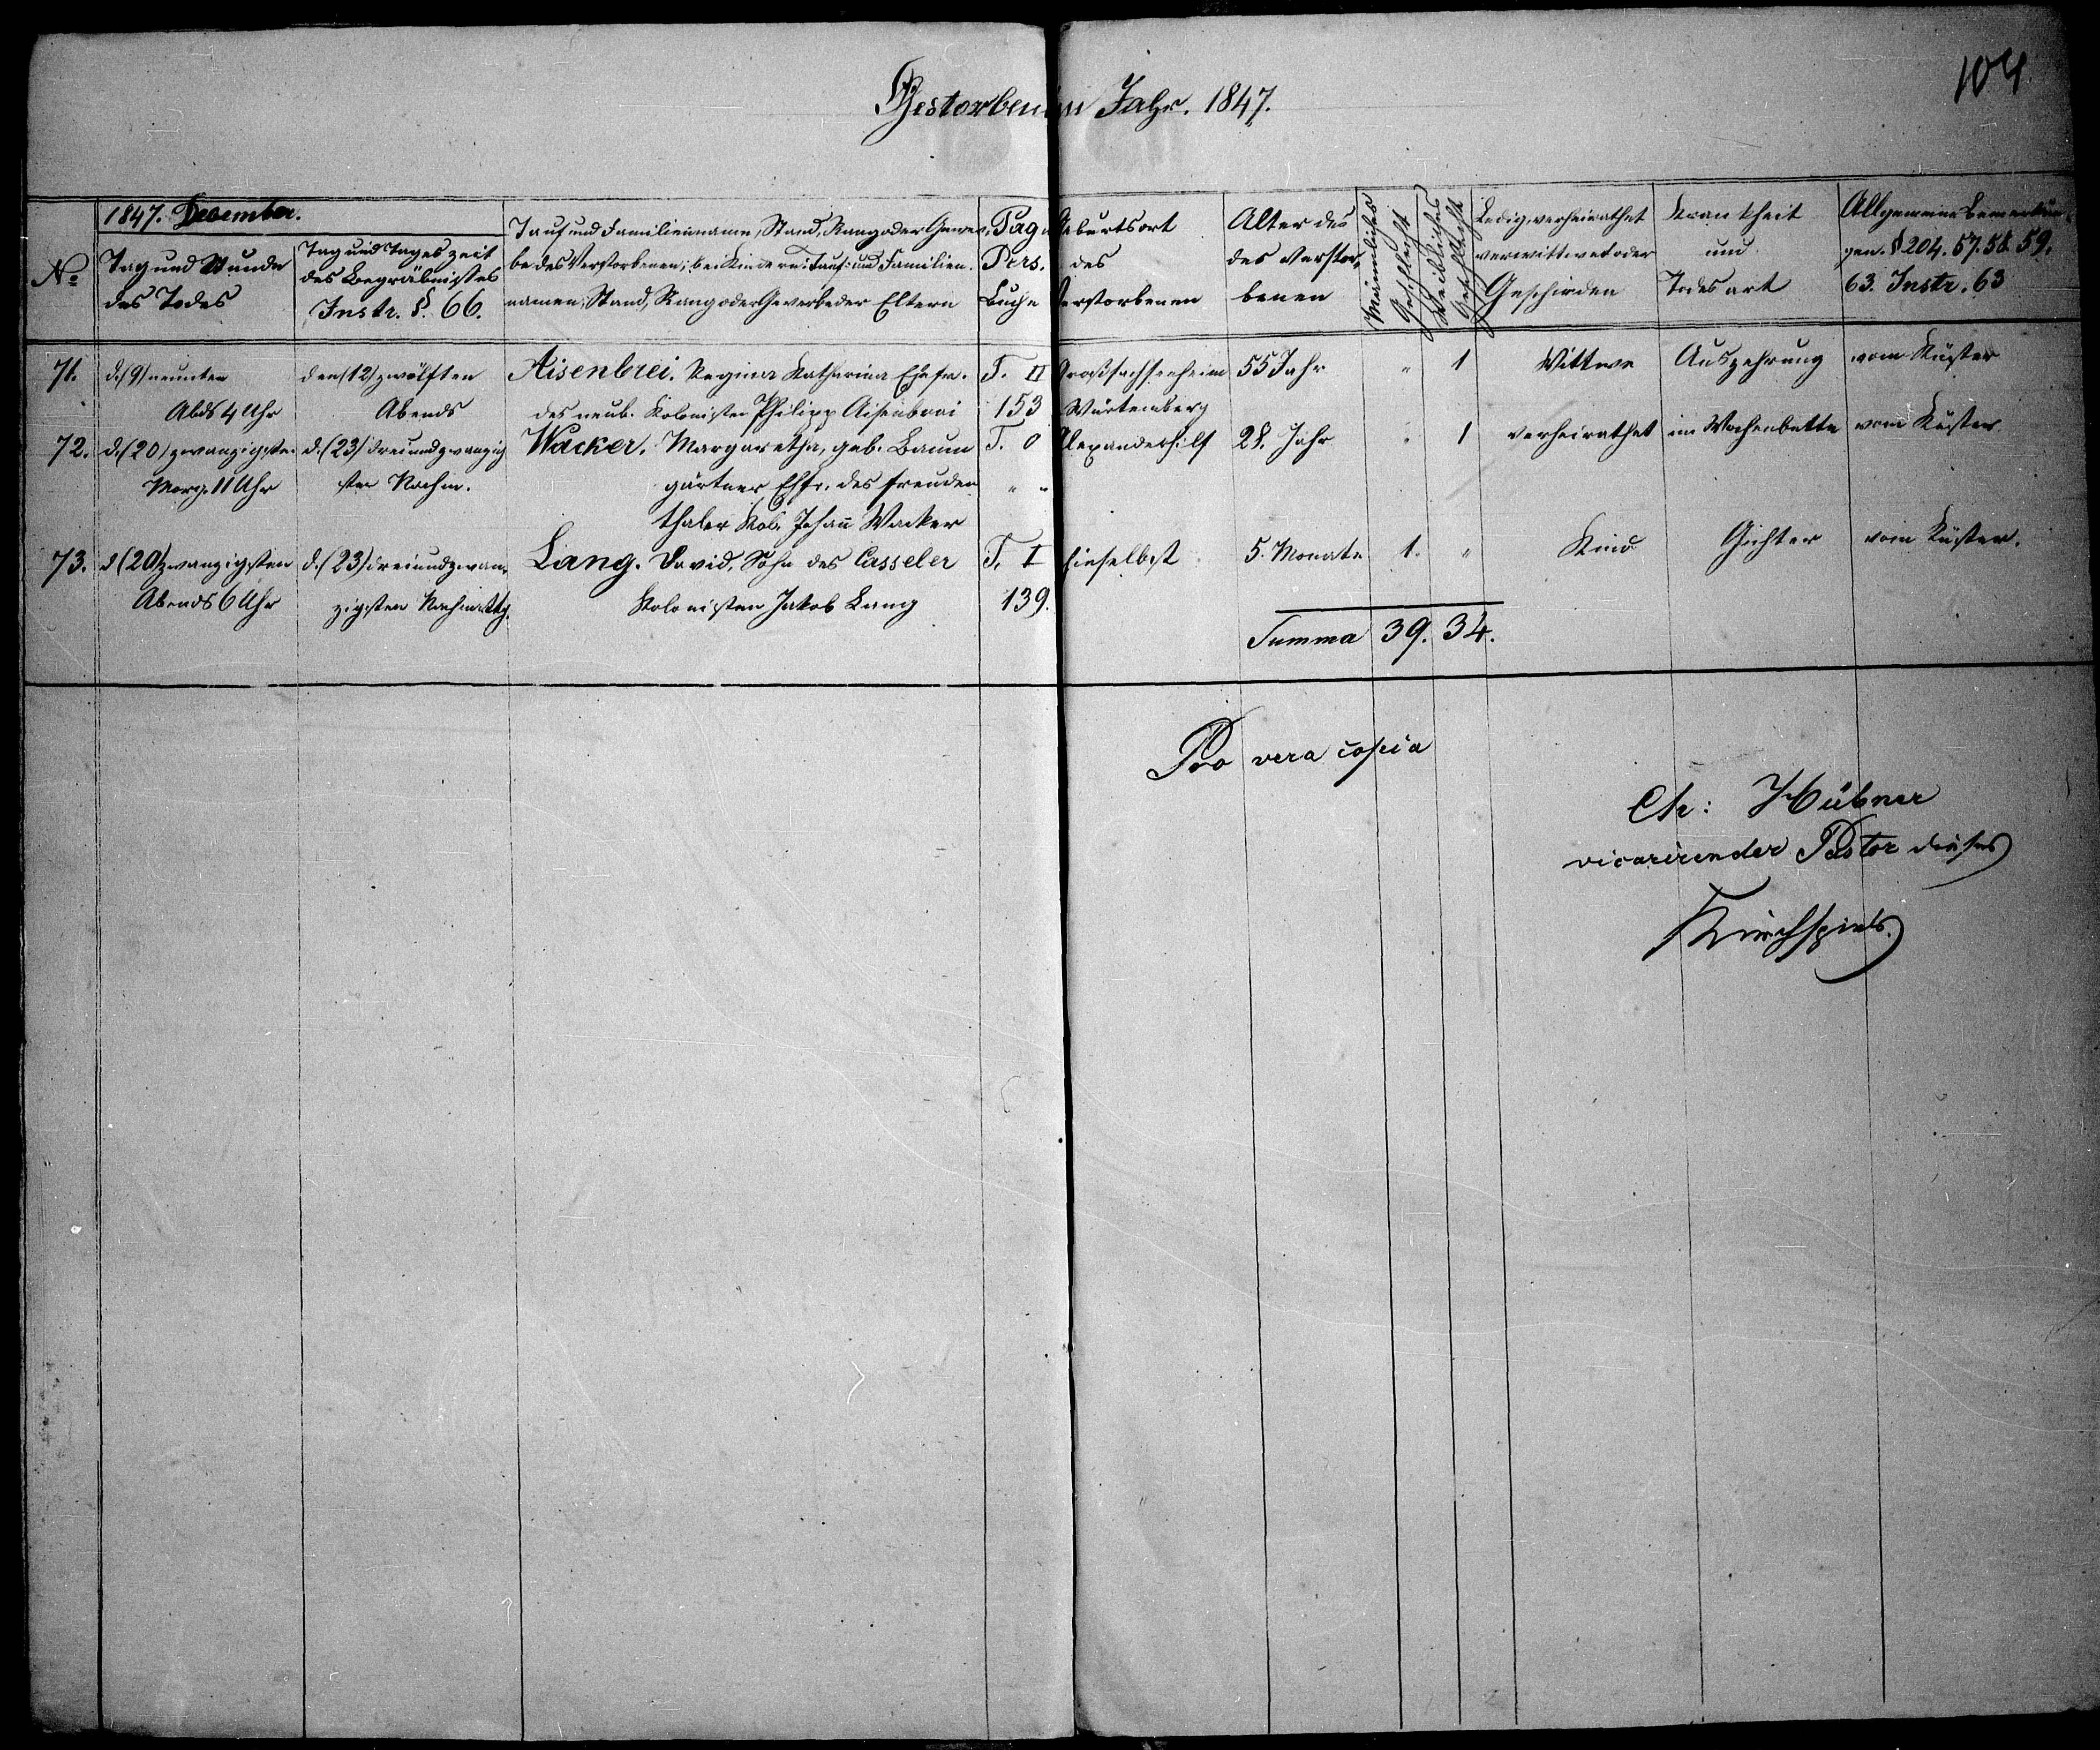 104
Gestorben im Jahr. 1847.
1847. December.
No
Tag und Stunde
des Todes
Tag und Tageszeit
des Begräbnisses
Instr. §. 66.
Tauf und Familienname, Stand, Rang oder Gewer-
be des Verstorbenen; bei Kindern: Tauf- und Familien-
namen, Stand, Rang oder Gewerbe der Eltern
Pag
Pers.
Buche
Geburtsort
des
Verstorbenen
Alter des
des Verstor-
benen
Männliches
Geschlecht
Weibliches
Geschlecht
Ledig, verheirathet
verwittwet oder
Geschieden
Krankheit
und
Todesart
Allgemeine Bemerkun-
gen. § 204. 57. 58. 59.
63. Instr. 63
71. d. (9) neunten den (12) zwölften Aisenbrei. Regina Katharina Ehefr. T. II Großsachsenheim 55 Jahr " 1 Wittwe Auszehrung vom Küster
Abds 4 Uhr Abends des neub. Kolonisten Philipp Aisenbrei 153 Würtemberg
72. d. (20) zwanzigsten d. (23) dreiundzwanzig Wacker. Margaretha, geb. Baum T. 0 Alexanderhilf 28. Jahr " 1 verheirathet im Wochenbette vom Küster
Morg. 11 Uhr sten Nachm. gärtner Ehfr. des freuden " "
thaler Kol. Johann Wacker
73. d (20) zwanzigsten d. (23) dreiundzwan- Lang. David, Sohn des Casseler T. I hieselbst 5. Monate 1. " Kind Gichter vom Küster.
Abends 6 Uhr zigsten Nachmittg. Kolonisten Jakob Lang 139.
Summa 39. 34.
Pro vera copia
Chr: Hübner
vicarirender Pastor dieses
Kirchspiels.